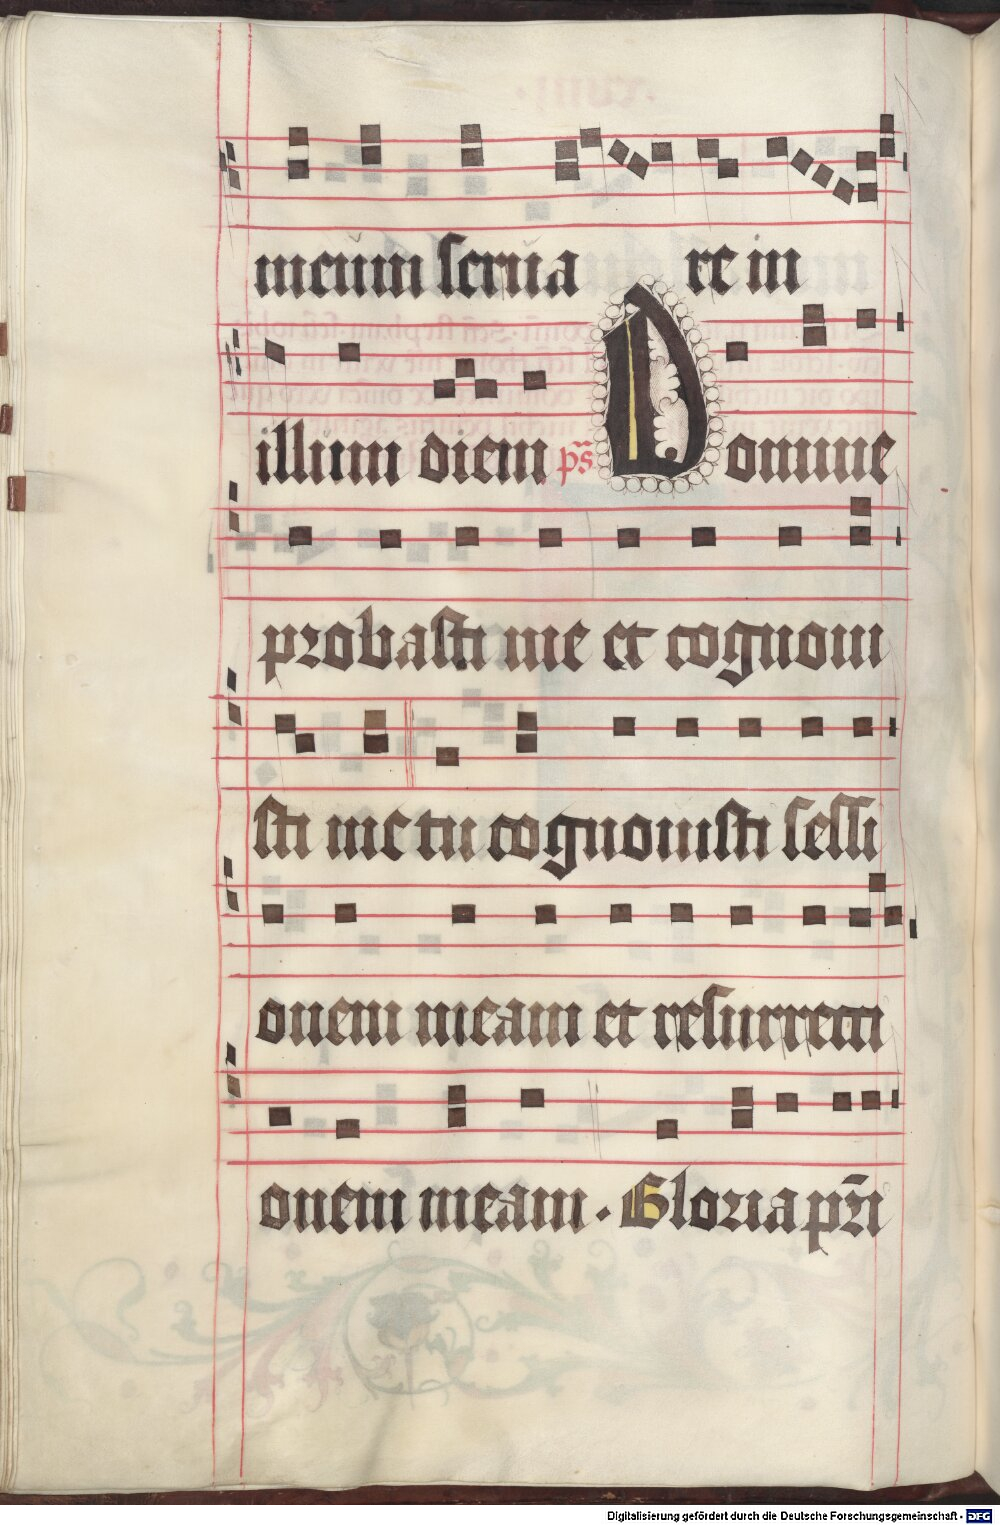 meum serua re in
illum diem ps̄ Domine
probasti me et cognoui
sti me tu cognouisti sessi
onem meam et resurrecti
onem meam · Gloria pr̄i
Digitalisierung gefördert durch die Deutsche Forschungsgemeinschaft - DFG